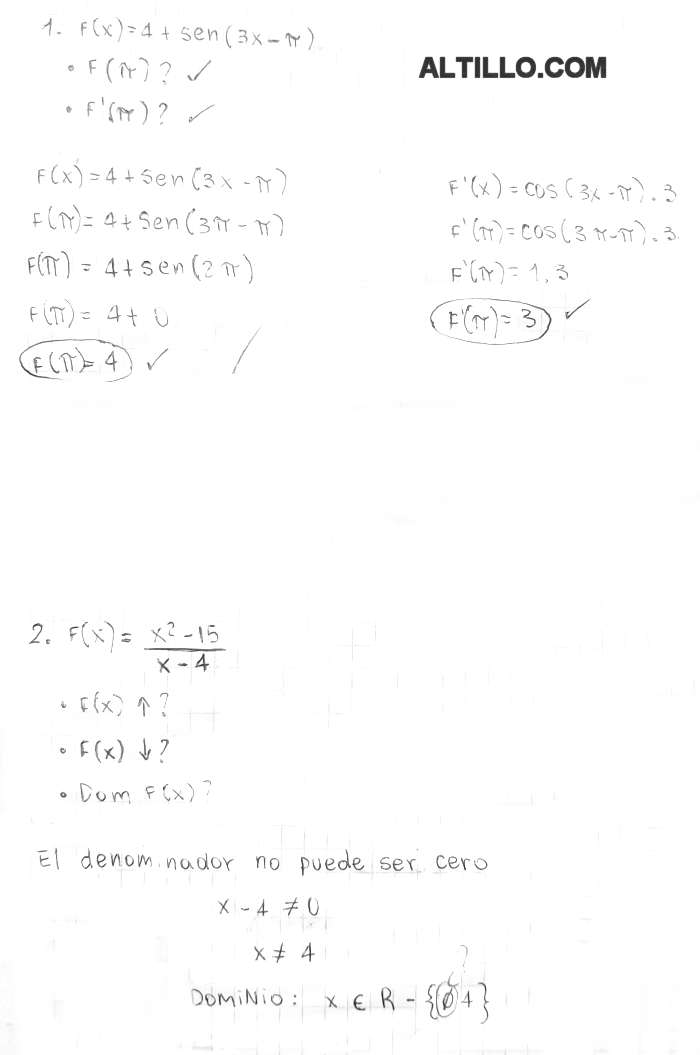 1. F(x)=4+sen(3x-π)
ALTILLO.COM
• F(π)? ✓
• F'(π)? ✓
F(x)=4+sen(3x-π)
F(π)=4+sen(3π-π)
F(π)=4+sen(2π)
F(π)=4+0
F(π)=4 ✓
F'(x)=cos(3x-π).3
F'(π)=cos(3π-π).3
F'(π)=1.3
F'(π)=3 ✓
2. F(x)= x²-15
x-4
• F(x) ↑?
• F(x) ↓?
• Dom F(x)?
El denominador no puede ser cero
x-4 ≠ 0
x ≠ 4
?
DOMINIO: x ∈ R - {0 4}